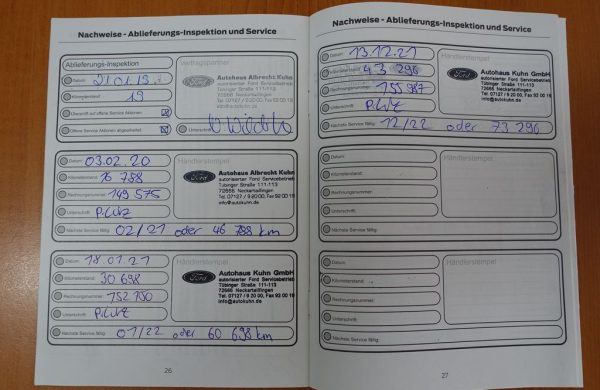 Nachweise - Ablieferungs-Inspektion und Service
Ablieferungs-Inspektion
Datum: 21.01.19
Kilometerstand: 19
Überprüft auf offene Service Aktionen
Offene Service Aktionen abgearbeitet
Unterschrift
Vertragspartner
Ford
Autohaus Albrecht Kuhn
autorisierter Ford Servicebetrieb
Tübinger Straße 111-113
72666 Neckartailfingen
Tel. 07127 / 9 20 00, Fax 92 00 19
info@autokuhn.de
Datum: 03.02.20
Kilometerstand: 16 788
Rechnungsnummer: 149 575
Unterschrift
Nächste Service fällig: 02/21 oder 46 788 km
Händlerstempel
Ford
Autohaus Albrecht Kuhn
autorisierter Ford Servicebetrieb
Tübinger Straße 111-113
72666 Neckartailfingen
Tel. 07127 / 9 20 00, Fax 92 00 19
info@autokuhn.de
Datum: 18.01.21
Kilometerstand: 30 698
Rechnungsnummer: 152 700
Unterschrift
Nächste Service fällig: 01/22 oder 60 698 km
Händlerstempel
Ford
Autohaus Kuhn GmbH
autorisierter Ford Servicebetrieb
Tübinger Straße 111-113
72666 Neckartailfingen
Tel. 07127 / 9 20 00, Fax 92 00 19
info@autokuhn.de
26
Nachweise - Ablieferungs-Inspektion und Service
Datum: 13.12.21
Kilometerstand: 43 296
Rechnungsnummer: 155 987
Unterschrift
Nächste Service fällig: 12/22 oder 73 296
Händlerstempel
Ford
Autohaus Kuhn GmbH
autorisierter Ford Servicebetrieb
Tübinger Straße 111-113
72666 Neckartailfingen
Tel. 07127 / 9 20 00, Fax 92 00 19
info@autokuhn.de
Datum:
Kilometerstand:
Rechnungsnummer:
Unterschrift
Nächste Service fällig:
Händlerstempel
Datum:
Kilometerstand:
Rechnungsnummer:
Unterschrift
Nächste Service fällig:
Händlerstempel
27